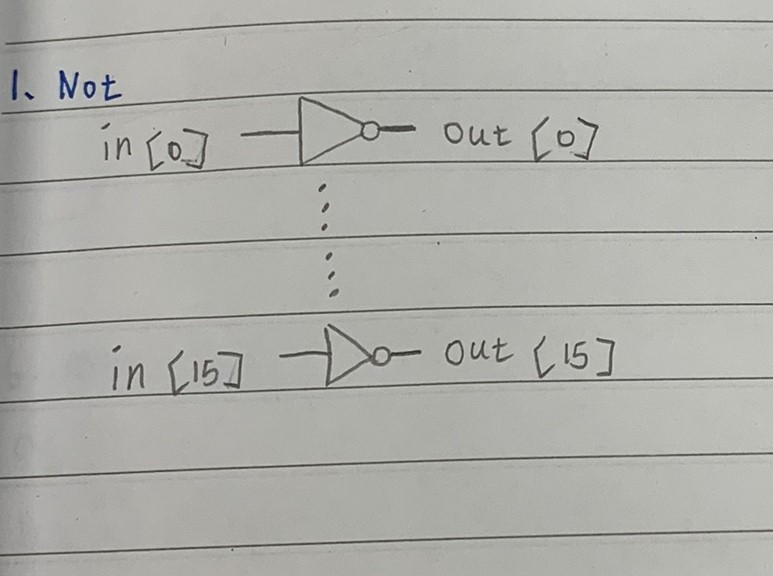 1、Not
in [0] out [0]
in [15] out [15]